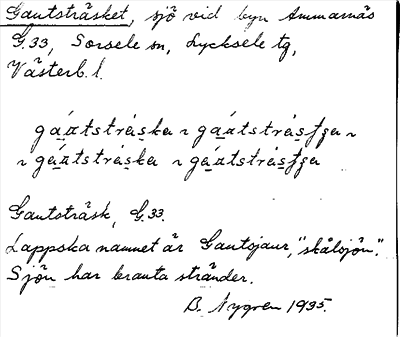 Gautsträsket, sjö vid byn Ammarnäs
G.33, Sorsele sn, Lycksele tg,
Västerb. l.
Gautsträsk, G.33.
Lappska namnet är Gautojaur, "skålsjön".
Sjön har branta stränder.
B. Nygren 1935.